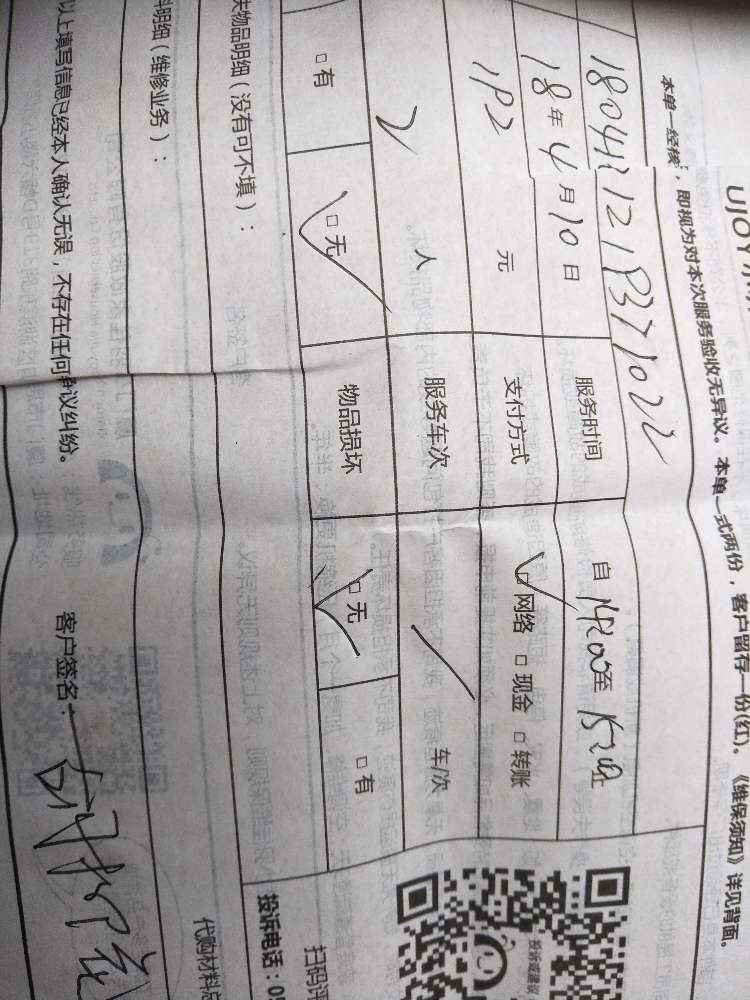 UJOY
本单一经核，即视为对本次服务验收无异议。本单一式两份，客户留存一份(红)。《维保须知》详见背面。
18年4月10日 服务时间 自 至
192 元 支付方式 □网络 □现金 □转账
2 人 服务车次 / 车/次
□有 □无 物品损坏 □无 □有
失物品明细（没有可不填）：
料明细（维修业务）：
以上填写信息已经本人确认无误，不存在任何争议纠纷。 客户签名：
投诉或建议
扫码评
投诉电话：05
代购材料总